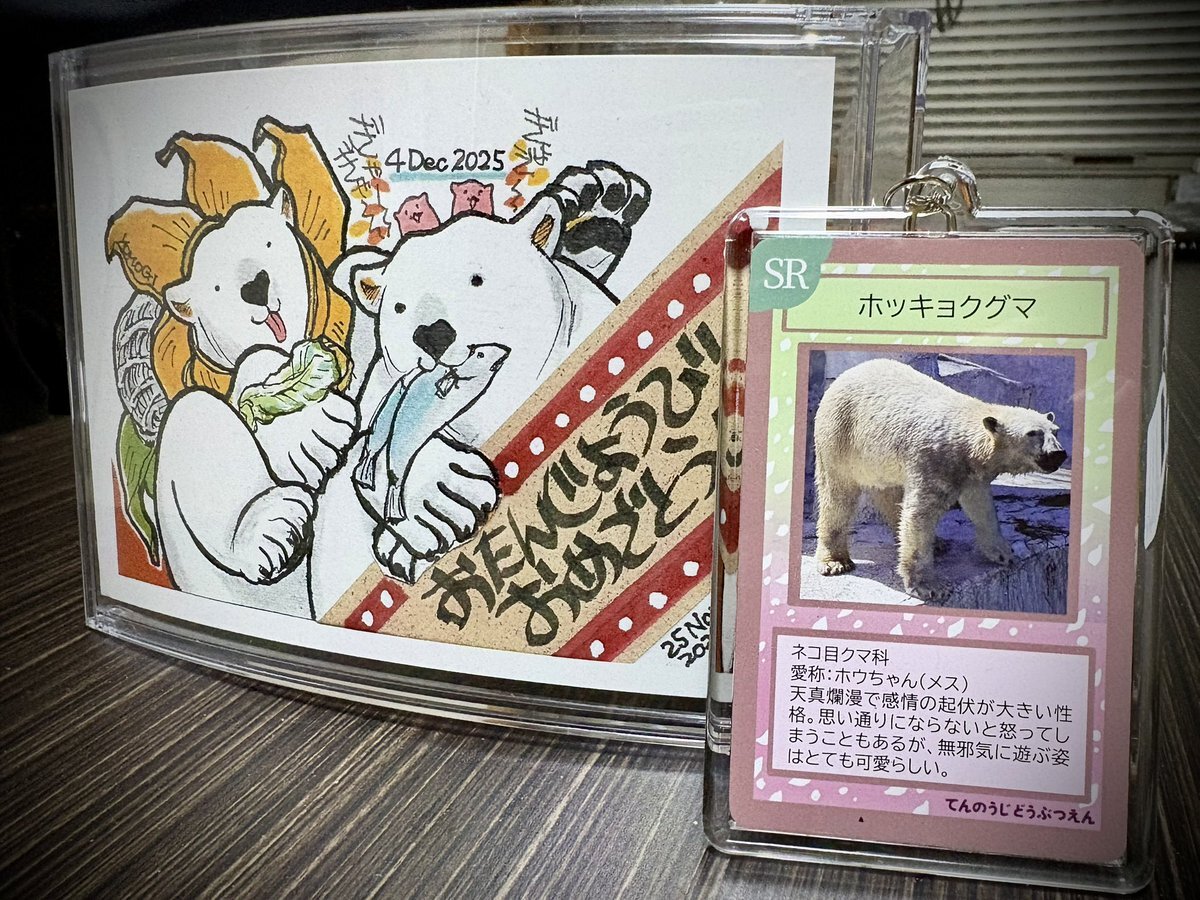 4 Dec 2025
おたんじょうび
おめでとう
25 No
SR
ホッキョクグマ
ネコ目クマ科
愛称：ホウちゃん(メス)
天真爛漫で感情の起伏が大きい性
格。思い通りにならないと怒ってし
まうこともあるが、無邪気に遊ぶ姿
はとても可愛らしい。
てんのうじどうぶつえん